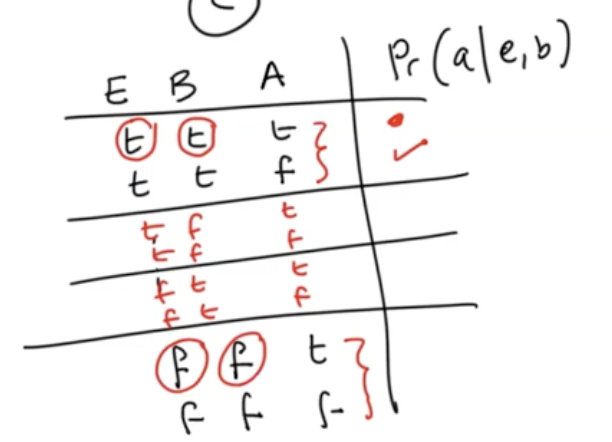 C
E B A Pr(a|e,b)
t t t
t t f
t f t
t f f
f t t
f t f
f f t
f f f